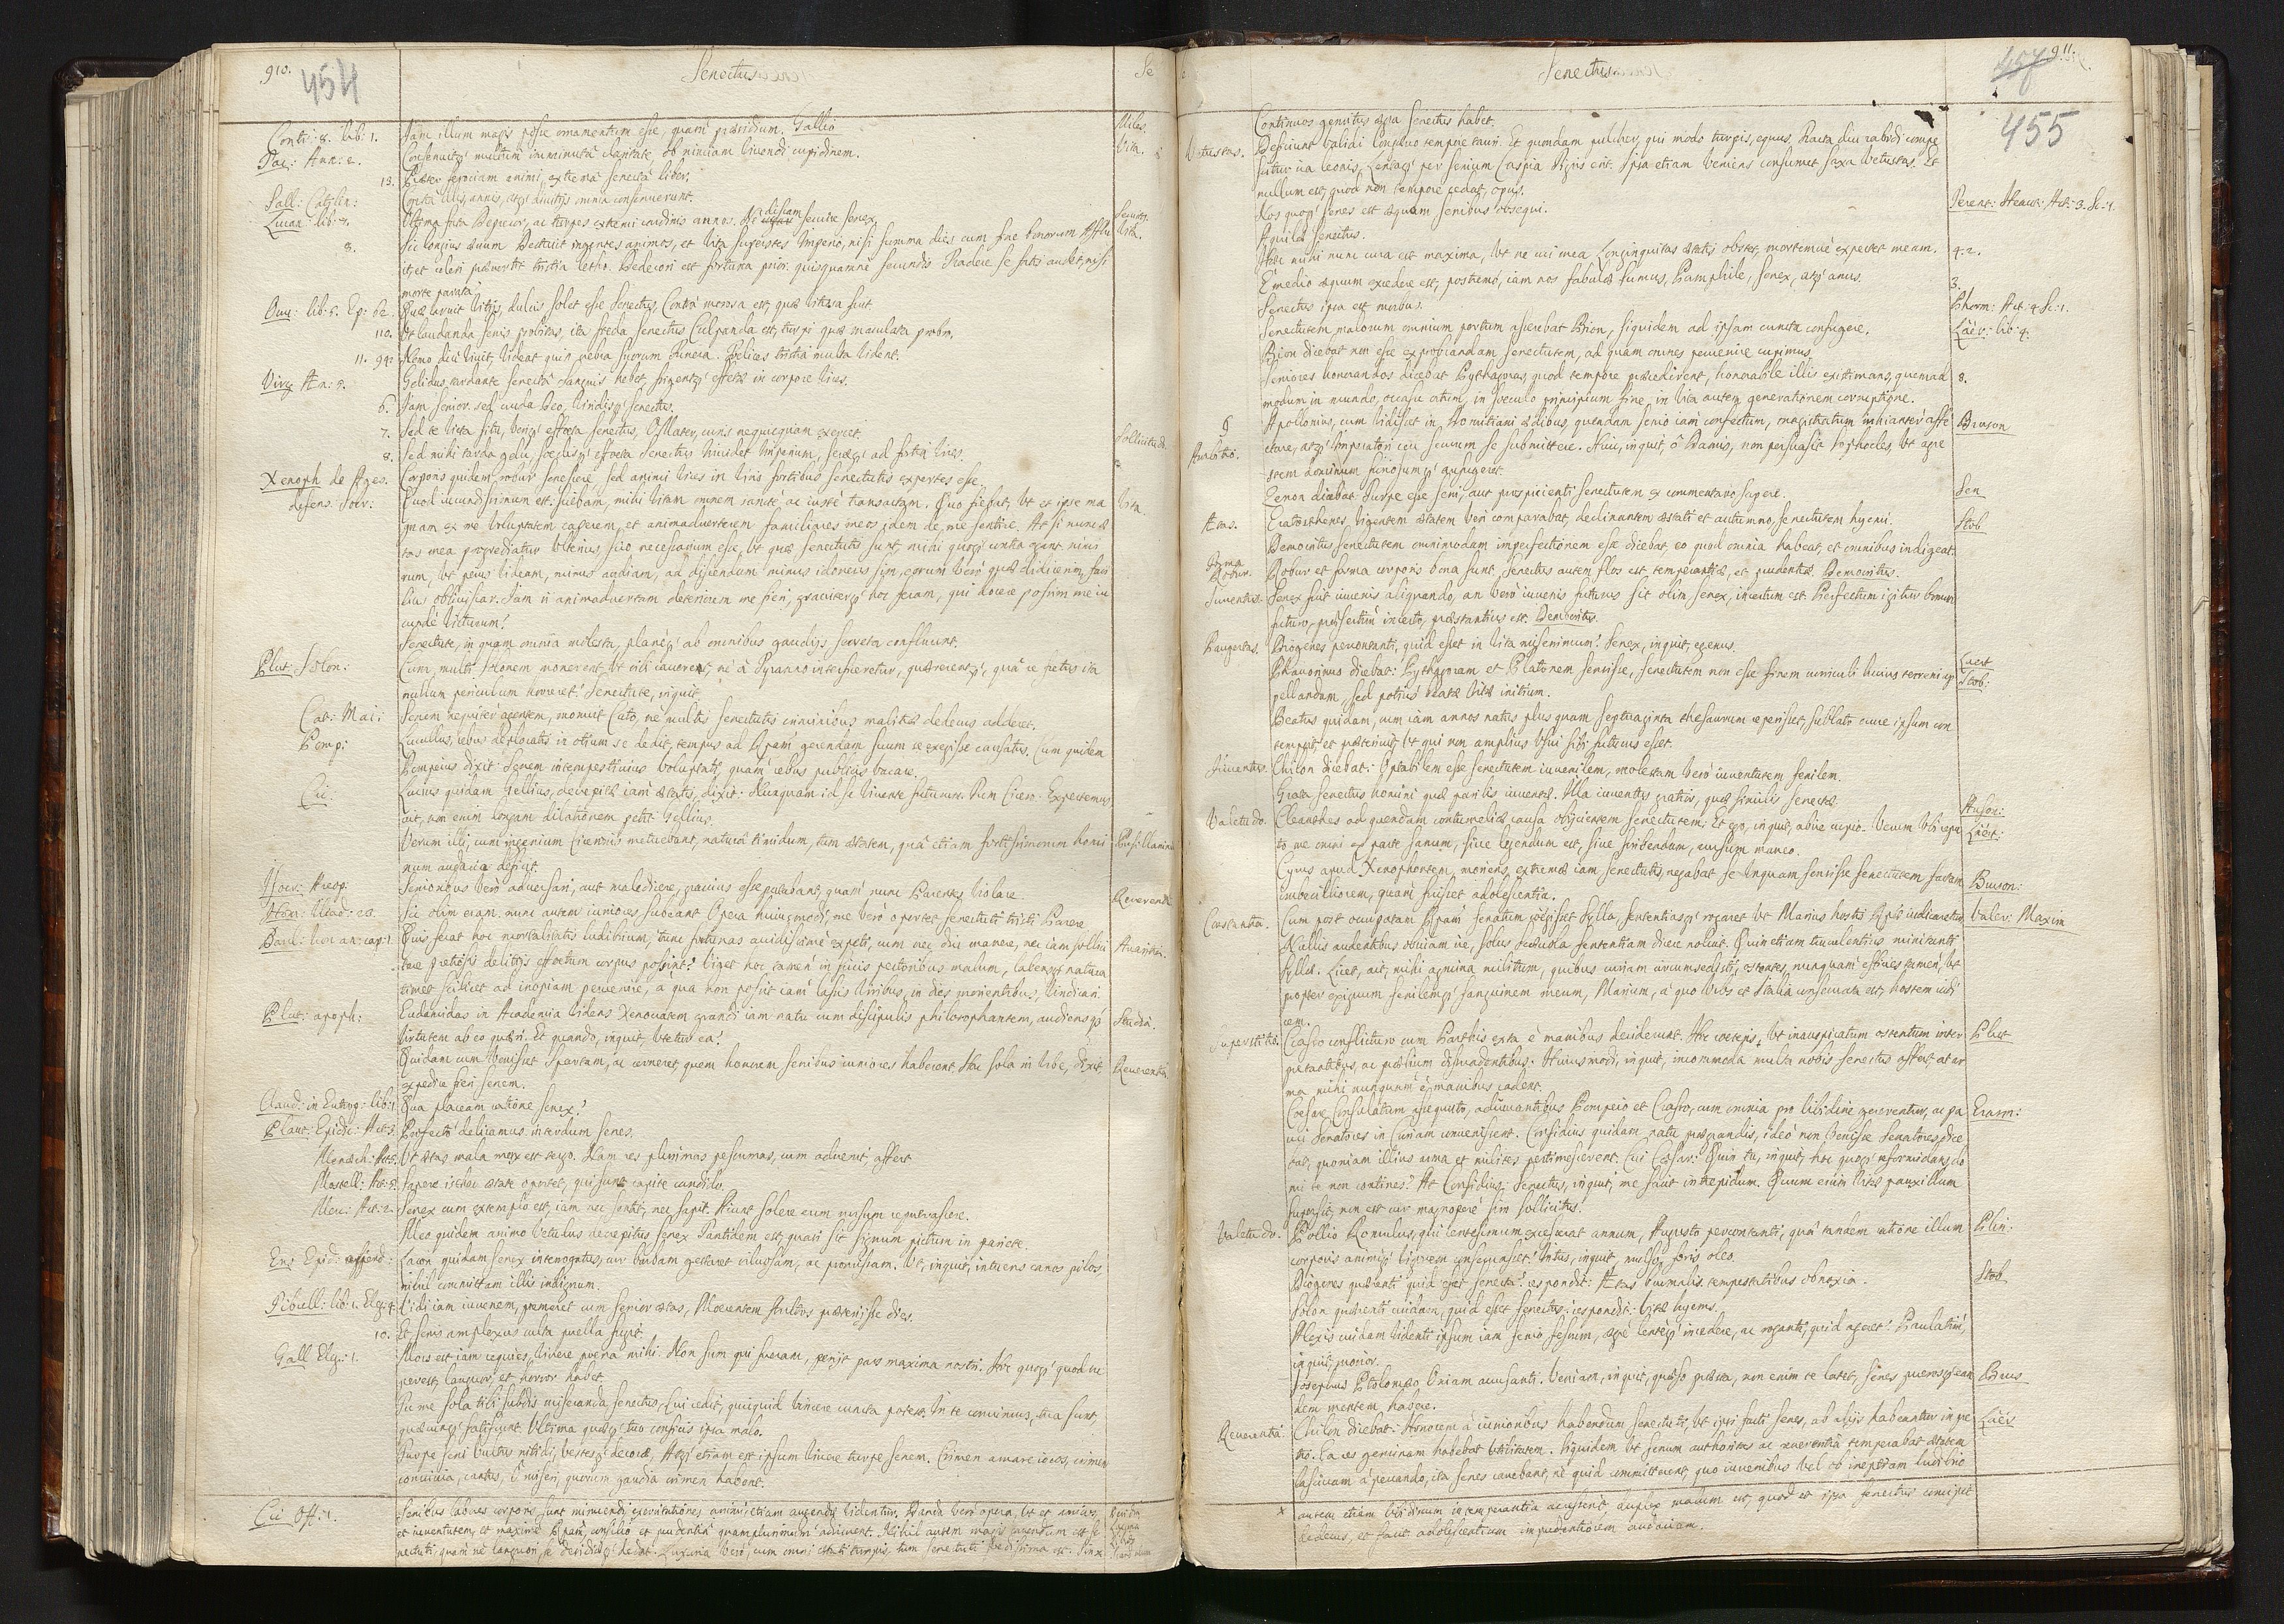 910.
454
Senectus
Se
Contr: 8. lib: 1. Jam illum magis posse ornamentum esse, quam præsidium. Gallio Miles.
Tac: Ann: 2. Consenuitq; multum imminutâ claritate, ob nimiam vivendi cupidinem. Vita.
13. Præter ferociam animi, extremâ senectâ liber.
Sall: Catilin: Contrà illis, annis, atq; divitijs omnia consenuerunt.
Lucan: lib: Ultima fata Deprecor, ac turpes extremi cardinis annos. Ne discam servire senex. Servit.
8. Sic longius ævum Destruit ingentes animos, et vita superstes Imperio, nisi summa dies cum fine bonorum Afflu Vita.
it, et celeri prævertit tristia letho. Dedecori est fortuna prior. quisquamne secundis Tradere se fatis audet, nisi
morte paratâ?
Ouu: lib: Ep: 62. Quæ lavit Vitijs, dulcis solet esse Senectus, Contrà morosa est, quæ vitiosa fuit.
110. Ut laudanda senis probitas, ita fœda senectus Culpanda est, turpi quæ maculata probro.
11. 94. Nemo diu vivit, videat quin verba suorum Funera. Felices tristia multa vident.
Virg Æn: 5. Gelidus, tardante senectâ Sanguis hebet, frigentq; effetæ in corpore vires.
6. Jam senior, sed cruda Deo, viridisq; senectus.
7. Sed te victa situ, veriq; effœta senectus, O Mater, curis nequicquam exercet. Sollicitudo
8. Sed mihi tarda gelu, sæclisq; effœta Senectus Invidet Imperium, seræq; ad fortia vires.
Xenoph de Ages. Corporis quidem robur senescere, sed animi vires in viris fortibus senectutis expertes esse.
defens: Socr: Quod iucundissimum est: sciebam, mihi vitam omnem sanctè ac iustè transactam. Quo fiebat, ut et ipse ma Vita.
gnam ex me voluptatem caperem, et animadverterem familiares meos idem de me sentire. At si nunc æ
tas mea progrediatur ulterius, scio necessarium esse, ut quæ senectutis sunt, mihi quoq; eveniant: nimi
rum, ut peius videam, minus audiam, ad discendum minus idoneus sim, eorum verò quæ didicerim, faci
lius obliviscar. Jam si animadvertam deteriorem me fieri, graviterq; hoc feram, qui docere possim me iu
cundè victurum?
Senectute, in quam omnia molesta, planeq; ab omnibus gaudijs deserta confluunt.
Plut: Solon: Cum multi Solonem monerent, ut sibi caveret, ne à Tyranno interficeretur, quærerentq;, quâ re fretus ita
nullum periculum horreret? Senectute, inquit.
Cat: Mai: Senem nequiter agentem, monuit Cato, ne multis senectutis criminibus malitiæ dedecus adderet.
Pomp: Lucullus, rebus desperatis in otium se dedit, tempus ad Rempub: gerendam suum se exegisse causatus. Cum quidem
Pompeius dixit: Senem intempestivius voluptati, quàm rebus publicis vacare.
Cic: Lucius quidam Gellius, decrepitæ iam ætatis, dixit: Nunquam id se vivente futurum. Tum Cicero: Expectemus,
ait, non enim longam dilationem petit Gellius.
Verum illi, cum ingenium Ciceronis metuebant, naturâ timidum, tum ætatem, quâ etiam fortissimorum homi Pusillanim
num audacia deficit.
Isocr: Areop: Senioribus verò adversari, aut maledicere, gravius esse putabant, quàm nunc Parentes violare. Reverentia
Hom: Iliad: 23. Sic olim eram. nunc autem iuniores subeant Opera huiusmodi, me verò oportet senectuti tristi Parere
Quis feret hoc mortalitatis ludibrium, tunc fortunas avidissimè expeti, cum nec diu manere, nec iam sollici Avaritia.
tare pretiosis delitijs effœtum corpus possint? Viget hoc tamen in siccis pectoribus malum, labensq; natura
timet scilicet ad inopiam pervenire, a qua non possit iam lassis viribus, in dies morientibus, vindicari
Plut: apoph: Eudamidas in Academia videns Xenocratem grandi iam natu cum discipulis philosophantem, audiensq; Studia.
virtutem ab eo quæri: Et quando, inquit, utetur ea?
Quidam cum venisset Spartam, ac cerneret, quem honorem senibus iuniores haberent. Hac sola in urbe, dixit, Reverentia
expedire fieri senem.
Claud: in Eutrop: lib: 1 Qua placeam ratione senex?
Plaut: Epidic: Act: 3. Perfectò deliramus interdum senes.
Menæch: Act: 5. Ut ætas mala merx est tergo. Nam res plurimas pessumas, cum advenit, affert.
Mostell: Act: 5. Sapere istac ætate oportet, qui sunt capite candido.
Merc: Act: 2. Senex cum extemplo est, iam nec sentit, nec sapit. Aiunt solere eum rursum repuerascere.
Meo quidem animo vetulus decrepitus senex Tantidem est, quasi sit signum pictum in pariete.
Lacon quidam senex interrogatus, cur barbam gestaret villosam, ac promissam. Ut, inquit, intuens canos pilos,
nihil committam illis indignum.
Tibull: lib: 1. Eleg: 4. Vidi iam iuvenem, premeret cum senior ætas, Mœrentem stultos præterijsse dies.
10. Et senis amplexus culta puella fugit.
Gall Eleg: 1. Mors est iam requies, vivere pœna mihi. Non sum qui fueram, perijt pars maxima nostri. Hoc quoq; quod su
perest, languor, et horror habet.
Tu me sola tibi subdis miseranda senectus, Cui cedit, quicquid vincere cuncta potest. In te corruimus, tua sunt,
quæcunq; fatiscunt. Ultima quæq; tuo conficis ipsa malo.
Turpe seni vultus nitidi, vestesq; decoræ, Atq; etiam est ipsum vivere turpe senem. Crimen amare iocos, crimen
convivia, cantus, O miseri, quorum gaudia crimen habent.
Cic Off: 1. Senibus labores corporis sunt minuendi, exercitationes animi etiam augendæ videntur. Danda verò opera, ut et amicos,
et iuventutem, et maximè Rempub:, consilio et prudentiâ quamplurimum adiuvent. Nihil autem magis cavendum est se
nectuti, quàm ne languori se desidiæq; dedat. Luxuria verò, cum omni ætati turpis, tum senectuti fœdissima est. Sin x
911.
455
Senectus
Continuos gemitus ægra senectus habet.
Vetustas. Desinunt validi longævo tempore tauri. Et quondam pulcher, qui modo turpis, equus. Fracta diu rabidi compe
scitur ira leonis, Lentaq; per senium Caspia tigris erit. Ipsa etiam veniens consumet saxa vetustas. Et
nullum est, quod non tempore cedat, opus.
Nos quoq; senes est æquum senibus obsequi. Terent: Heaut: Act: 3. Sc: 1.
Aquilæ senectus.
Hoc mihi nunc cura est maxima, ut ne cui mea Longinquitas ætatis obstet, mortemvè expectet meam. 4. 2.
E medio æquum excedere est, postremò iam nos fabulæ sumus, Pamphile, senex, atq; anus. 3.
Senectus ipsa est morbus. Phorm: Act: 4 Sc: 1.
Senectutem, malorum omnium portum asserebat Bion, siquidem ad ipsam cuncta confugere. Laër: lib: 4.
Bion dicebat non esse exprobrandam senectutem, ad quam omnes pervenire cupimus.
Seniores honorandos dicebat Pythagoras, quod tempore præcedirent, honorabile illis existimans, quemad 8.
modum in mundo, occasu ortum, in sæculo principium fine, in vita autem generationem corruptione.
Ambitio. Apollonius, cum vidisset in Domitiani ædibus, quendam senio iam confectum, magistratum inhianter affe Bruson
ctare, atq; Imperatori ceu servum se submittere. Huic, inquit, ô Damis, non persuasit Sophocles, ut agre
stem dominum furiosumq; aufugeret.
Zenon dicebat: Turpe esse seni, aut prospicienti senectutem ex commentario sapere. Sen
Ætas. Eratosthenes, vigentem ætatem veri comparabat, declinantem æstati et autumno, senectutem hyemi. Stob
Democritus senectutem omnimodam imperfectionem esse dicebat, eo quod omnia habeat, et omnibus indigeat.
Forma Robur. Robur et forma corporis bona sunt, senectus autem flos est temperantiæ, et prudentiæ. Democritus.
Iuventus. Senex fuit iuvenis aliquando, an verò iuvenis futurus sit olim senex, incertum est. Perfectum igitur bonum
futuro, præsertim incerto, præstantius est. Democritus.
Paupertas. Diogenes percontanti, quid esset in vita miserrimum? Senex, inquit, egenus.
Phavorinus dicebat: Pythagoram et Platonem sensisse, senectutem non esse finem curriculi huius terreni ap Laert Stob.
pellandam, sed potius beatæ vitæ initium.
Beatus quidam, cum iam annos natus plus quam septuaginta thesaurum reperisset, sublato crure ipsum con
tempsit, et præterivit, ut qui non amplius usui sibi futurus esset.
Iuventus. Chilon dicebat: Optabilem esse senectutem iuvenilem, molestam verò iuventutem senilem.
Grata senectus homini quæ parilis iuventæ. Illa iuventus gratior, quæ similis senectæ. Auson:
Valetudo. Cleanthes ad quendam contumeliæ causa obijcientem senectutem: Et ego, inquit, abire cupio. Verum ubi repu Laërt:
to me omni ex parte sanum, sive legendum est, sive scribendum, rursum maneo.
Cyrus apud Xenophontem, moriens, extremæ iam senectutis, negabat se unquam sensisse senectutem suam Bruson:
imbecilliorem, quàm fuisset adolescentia.
Constantia. Cum post occupatam Rempub: senatum coëgisset Sylla, sententiasq; rogaret ut Marius hostis Rp: iudicaretur Valer: Maxim
Nullis audentibus obviam ire, solus Scævola sententiam dicere noluit. Quin etiam truculentius minitanti
Syllæ. Licet, ait, mihi agmina militum, quibus curiam circumsedisti, ostentes, nunquam efficies tamen, ut
propter exiguum senilemq; sanguinem meum, Marium, a quo Urbs et Italia conservata est, hostem iudi
cem.
Superstitio. Crasso conflicturo cum Parthis exta è manibus deciderunt. Hic cæteris, ut inauspicatum ostentum inter Plut
pretantibus, ac prælium dissuadentibus: Huiusmodi, inquit, incommoda multa nobis senectus affert, at ar
ma mihi nunquam è manibus cadent.
Cæsare Consulatum assequuto, adiuvantibus Pompeio et Crasso, cum omnia pro libidine gererentur, ac pa Erasm:
uci Senatores in Curiam convenissent. Considius quidam natu prægrandis, ideò non venisse Senatores, dice
bat, quoniam illius arma et milites pertimescerent. Cui Cæsar: Quin tu, inquit, hæc quoq; reformidans, do
mi te non contines? At Considius: Senectus, inquit, me facit intrepidum. Quum enim vitæ pauxillum
supersit, non est cur magnoperè sim sollicitus.
Valetudo. Pollio Romulus, qui centesimum excesserat annum, Augusto percontanti, quâ tandem ratione illum Plin:
corporis animiq; vigorem conservasset? Intus, inquit, mulso, foris oleo.
Diogenes quærenti quid esset senecta? respondit: Ætas brumalis tempestatibus obnoxia. Stob
Solon quærenti cuidam, quid esset senectus? respondit: Vitæ hyems.
Alexis cuidam videnti ipsum iam senio fessum, ægrè lenteq; incedere, ac roganti, quid ageret? Paulatim,
inquit, morior.
Josephus Ptolomæo Oniam accusanti. Veniam, inquit, quæso præsta, non enim te latet, senes puerosq; ean
dem mentem habere.
Reverentia Chilon dicebat: Honorem à iunioribus habendum senectuti, ut ipsi facti senes, ab alijs haberentur in pre Laër
tio. Ea res geminam habebat utilitatem. Siquidem ut senum authoritas ac reverentia temperabat ætatem
lascivam à peccando, ita senes cavebant, ne quid committerent, quo iuvenibus vel ob ineptiam ludibrio
x autem etiam libidinum intemperantia accesserit duplex malum est, quod et ipsa senectus concipit
dedecus, et facit adolescentium impudentiorem audaciam.